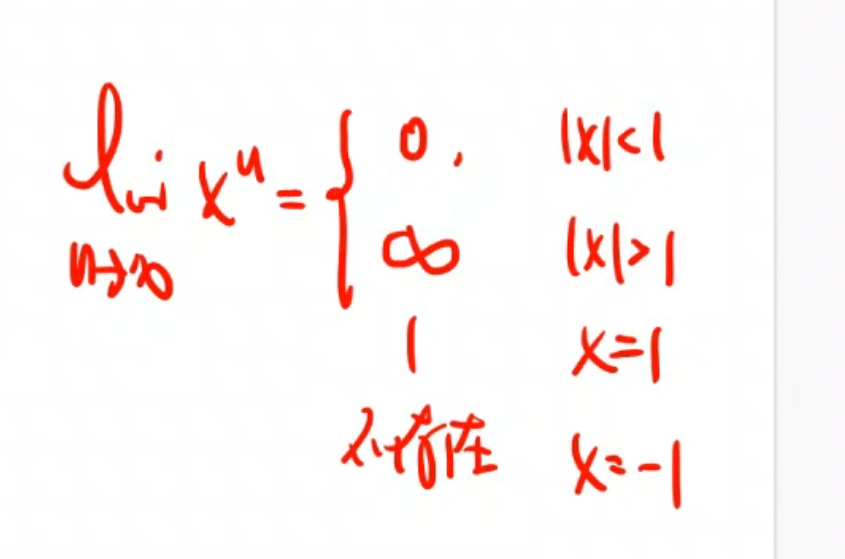 lim x^n = { 0, |x|<1
n→∞
∞ |x|>1
1 x=1
不存在 x=-1